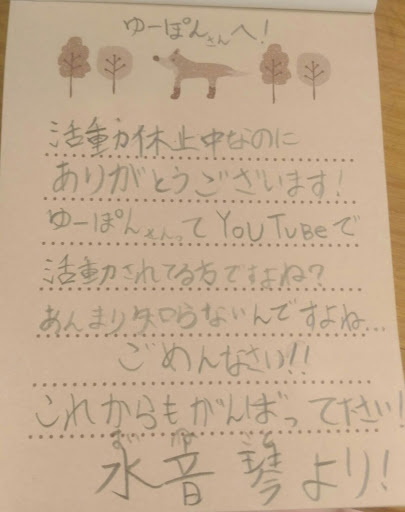 ゆーぽんさんへ!
活動休止中なのに
ありがとうございます!
ゆーぽんさんって YouTubeで
活動されてる方ですよね?
あんまり知らないんですよね...
ごめんなさい!!
これからもがんばってださい!
水音 琴より!